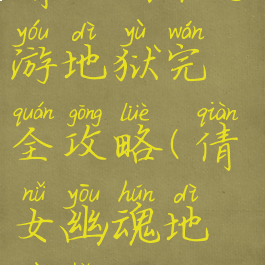 yóu dì yù wán
游地狱完
quán gōng lüè qiàn
全攻略(倩
nǚ yōu hún dì
女幽魂地